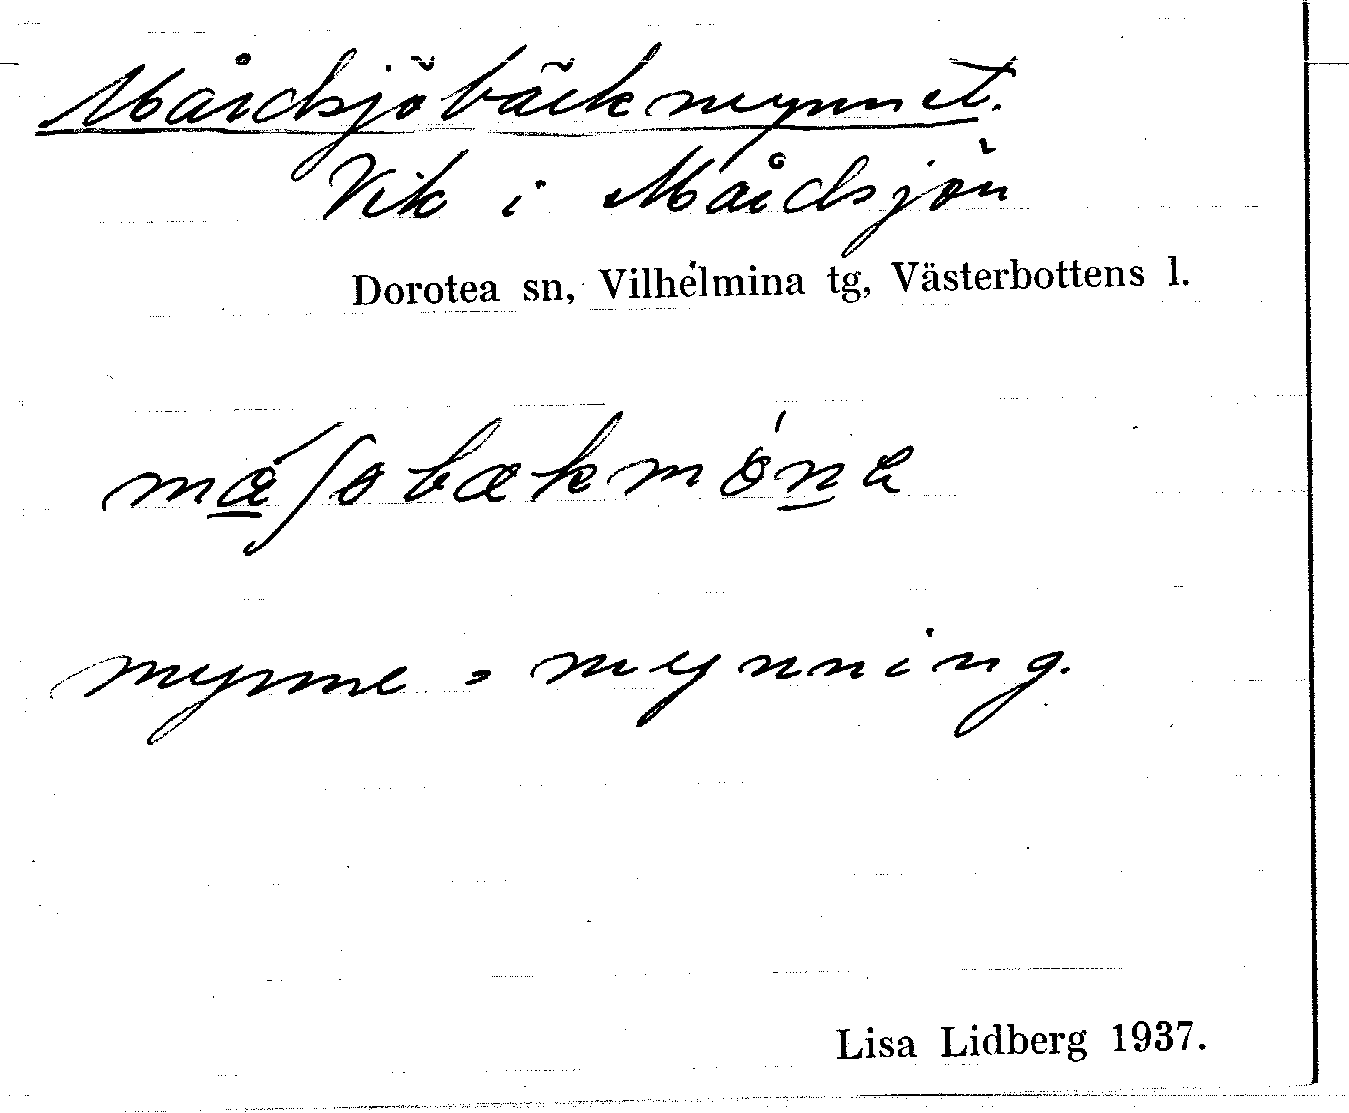 Mårdsjöbäckmynnet.
Vik i Mårdsjön
Dorotea sn, Vilhelmina tg, Västerbottens l.
mynne = mynning.
Lisa Lidberg 1937.